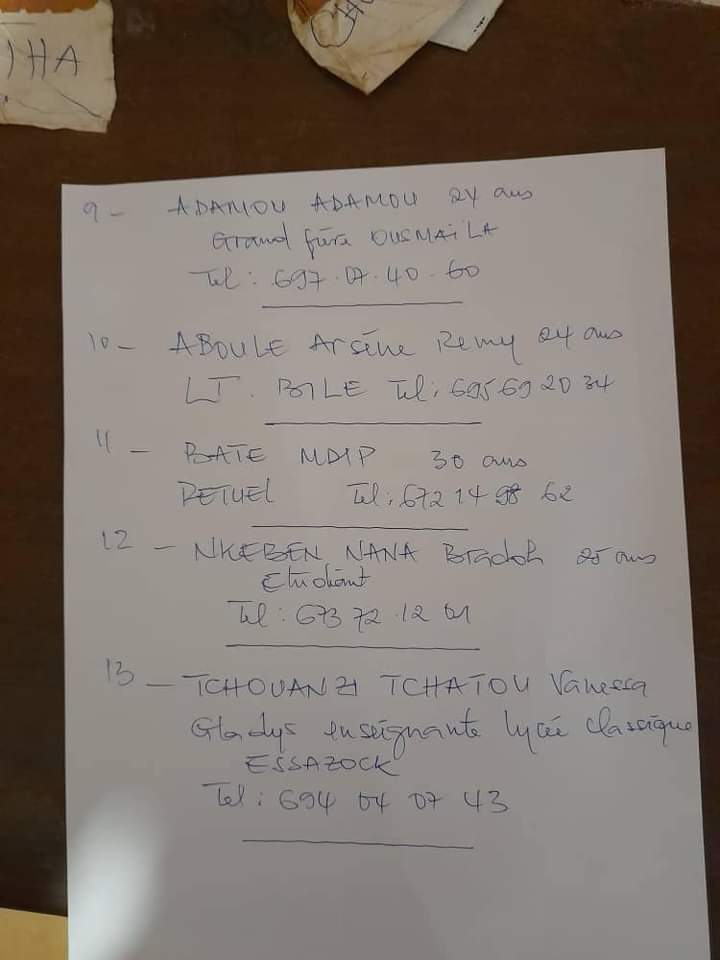 IHA
9 - ADAMOU ADAMOU 24 ans
Grand frère OUSMAILA
Tel : 697.07.40.60
10 - ABOULE Arsène Remy 24 ans
LT. BILE Tel : 695 69 20 34
11 - BATE MDIP 30 ans
Tel : 672 14 98 62
12 - NKEBEN NANA 25 ans
Etudiant
Tel : 673 72 12 01
13 - TCHOUANZI TCHATOU Vanessa
Gladys enseignante lycée classique
ESSAZOCK
Tel : 694 04 07 43